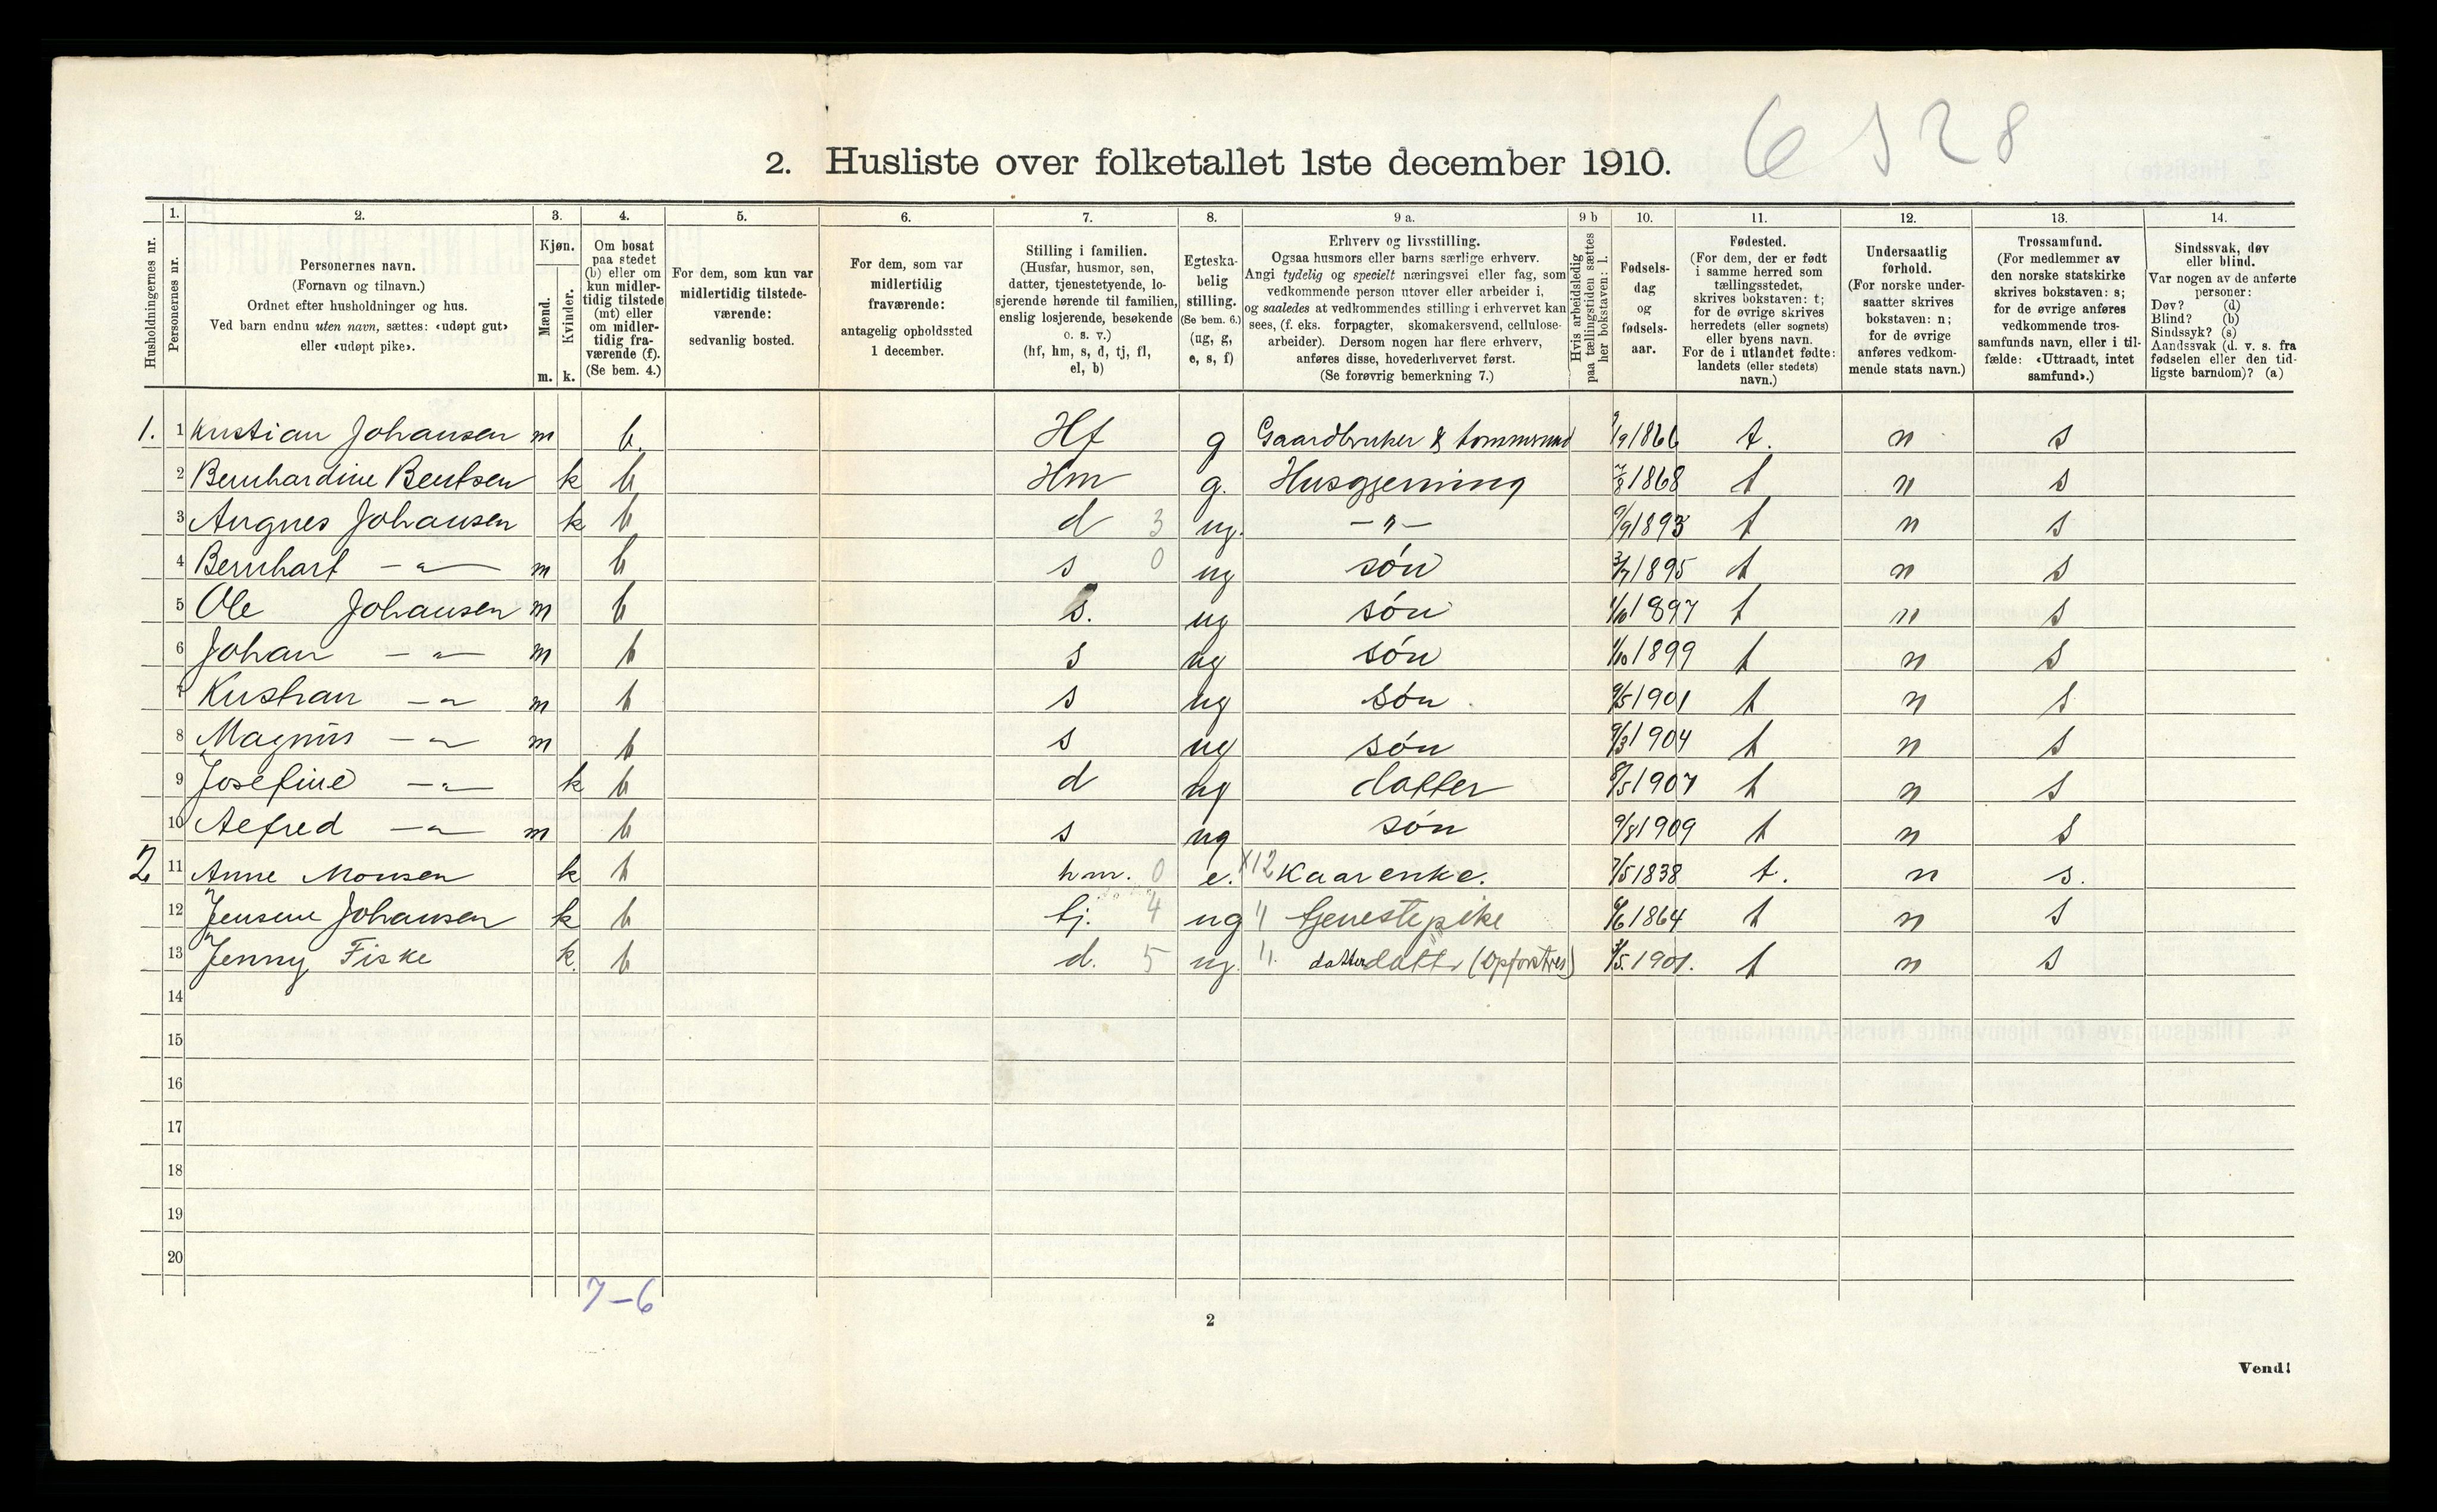 6 5 2 8
2. Husliste over folketallet 1ste december 1910.
Husholdningernes nr.
1. Personernes nr.
2. Personernes navn.
(Fornavn og tilnavn.)
Ordnet efter husholdninger og hus.
Ved barn endnu uten navn, sættes: «udøpt gut»
eller «udøpt pike».
3. Kjøn.
Mænd. Kvinder.
m. k.
4. Om bosat
paa stedet
(b) eller om
kun midler-
tidig tilstede
(mt) eller
om midler-
tidig fra-
værende (f).
(Se bem. 4.)
5. For dem, som kun var
midlertidig tilstede-
værende:
sedvanlig bosted.
6. For dem, som var
midlertidig
fraværende:
antagelig opholdssted
1 december.
7. Stilling i familien.
(Husfar, husmor, søn,
datter, tjenestetyende, lo-
sjerende hørende til familien,
enslig losjerende, besøkende
o. s. v.)
(hf, hm, s, d, tj, fl,
el, b)
8. Egteska-
belig
stilling.
(Se bem. 6.)
(ug, g,
e, s, f)
9 a. Erhverv og livsstilling.
Ogsaa husmors eller barns særlige erhverv.
Angi tydelig og specielt næringsvei eller fag, som
vedkommende person utøver eller arbeider i,
og saaledes at vedkommendes stilling i erhvervet kan
sees, (f. eks. forpagter, skomakersvend, cellulose-
arbeider). Dersom nogen har flere erhverv,
anføres disse, hovederhvervet først.
(Se forøvrig bemerkning 7.)
9 b Hvis arbeidsledig
paa tællingstiden sættes
her bokstaven: l.
10. Fødsels-
dag
og
fødsels-
aar.
11. Fødested.
(For dem, der er født
i samme herred som
tællingsstedet,
skrives bokstaven: t;
for de øvrige skrives
herredets (eller sognets)
eller byens navn.
For de i utlandet fødte:
landets (eller stedets)
navn.)
12. Undersaatlig
forhold.
(For norske under-
saatter skrives
bokstaven: n;
for de øvrige
anføres vedkom-
mende stats navn.)
13. Trossamfund.
(For medlemmer av
den norske statskirke
skrives bokstaven: s;
for de øvrige anføres
vedkommende tros-
samfunds navn, eller i til-
fælde: «Uttraadt, intet
samfund».)
14. Sindssvak, døv
eller blind.
Var nogen av de anførte
personer:
Døv? (d)
Blind? (b)
Sindssyk? (s)
Aandssvak (d. v. s. fra
fødselen eller den tid-
ligste barndom)? (a)
1. 1 Kristian Johansen m b. Hf g Gaardbruker & 1866 t. n s
2 Bernhardine Bentsen k b Hm g. Husgjerning 7/8 1868 t n s
3 Angnes Johansen k b d 3 ug. —"— 9/9 1893 t n s
4 Bernhart —"— m b s 0 ug søn 3/7 1895 t n s
5 Ole Johansen m b s. ug søn 1/10 1897 t n s
6 Johan —"— m b s ug søn 1/10 1899 t n s
7 Kristian —"— m b s ug søn 9/5 1901 t n s
8 Magnus —"— m b s ug søn 9/3 1904 t n s
9 Josefine —"— k b d ug datter 8/5 1907 t n s
10 Aefred —"— m b s ug søn 9/8 1909 t n s
2 11 Anne Monsen k b hm. 0 e. X12 Kaarenke. 7/5 1838 t. n s.
12 Jensene Johansen k b tj. 4 ug " tjenestepike 6/6 1864 t n s
13 Jenny Fiske k. b d. 5 ug. " datterdatter (Opfostres) 3/5. 1901. t n s
14
15
16
17
18
19
20
7-6
2
Vend!